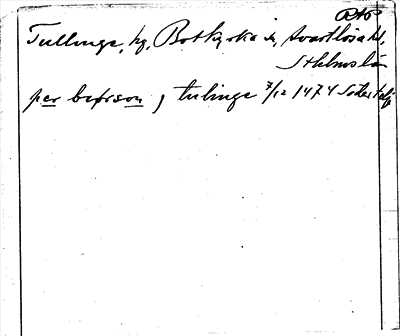 RAP
Tullinge, hg, Botkyrka sn, Svartlösa hd,
Sthlms län
per boosson j tulinge 3/12 1474 Södertelje